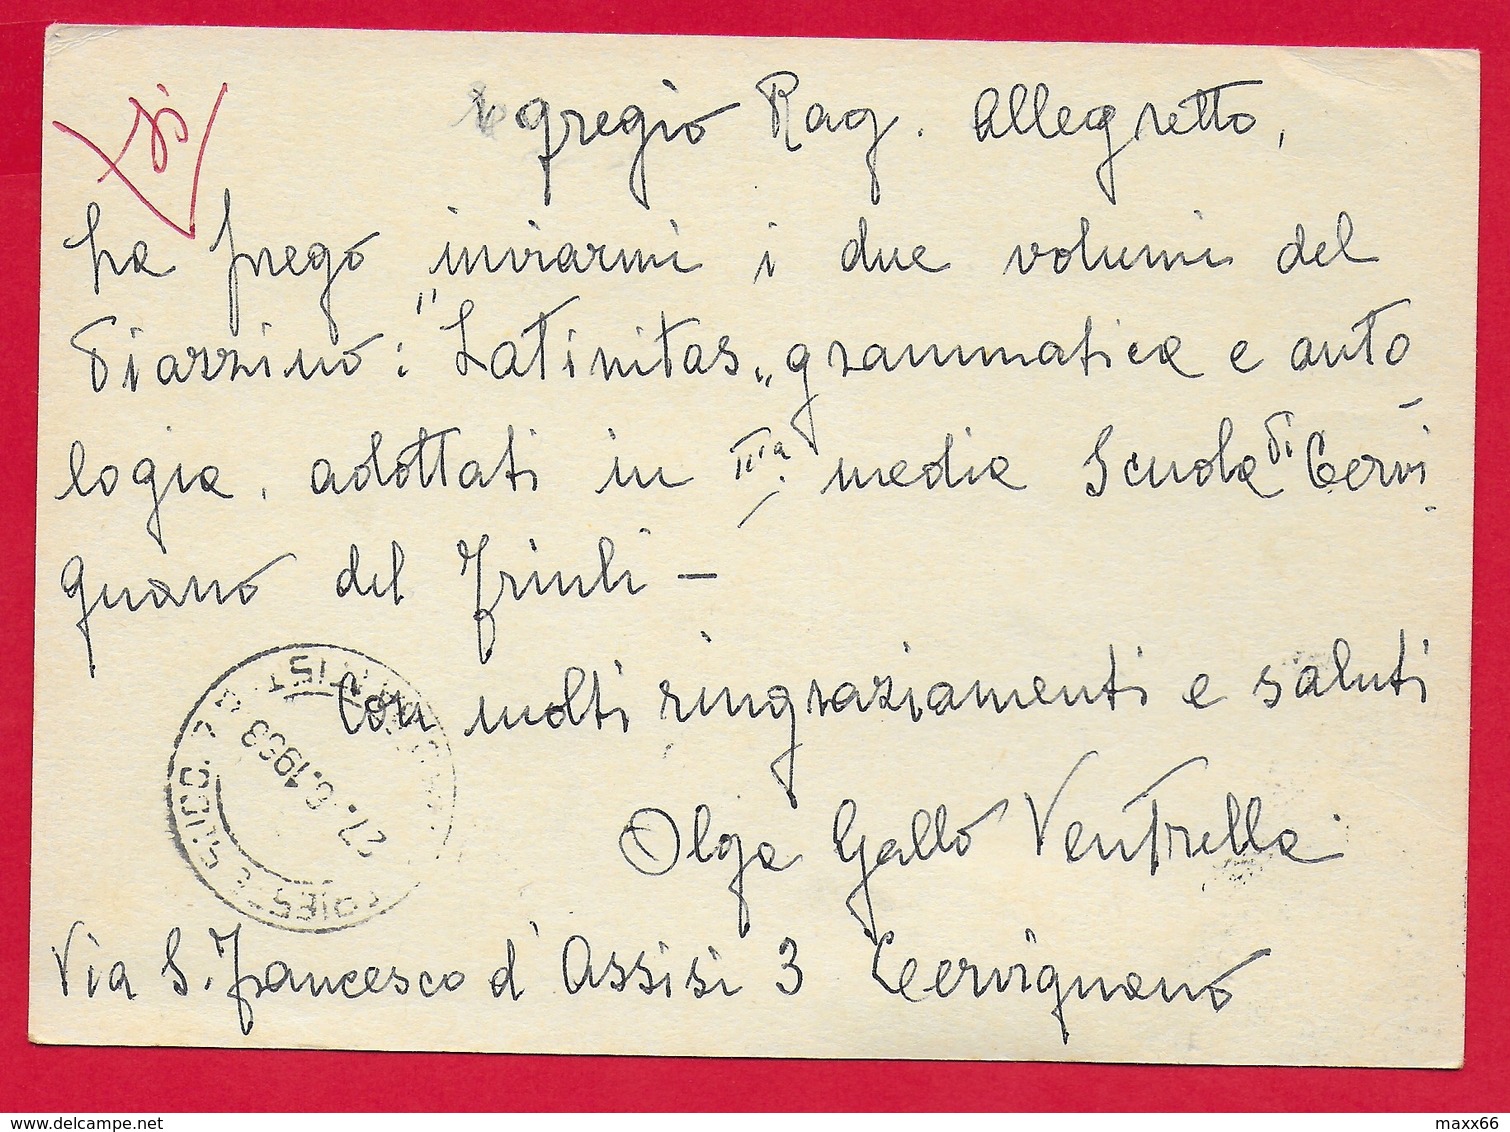 Egregio Rag. Allegretto,
La prego inviarmi i due volumi del
Tiarzino: "Latinitas„ grammatica e anto
logia, adottati in IIIa media Scuola di Cervi
gnano del Friuli -
Con molti ringraziamenti e saluti
Olga Gallo Ventrella
Via S. Francesco d'Assisi 3 Cervignano
27.6.1953
maxx66